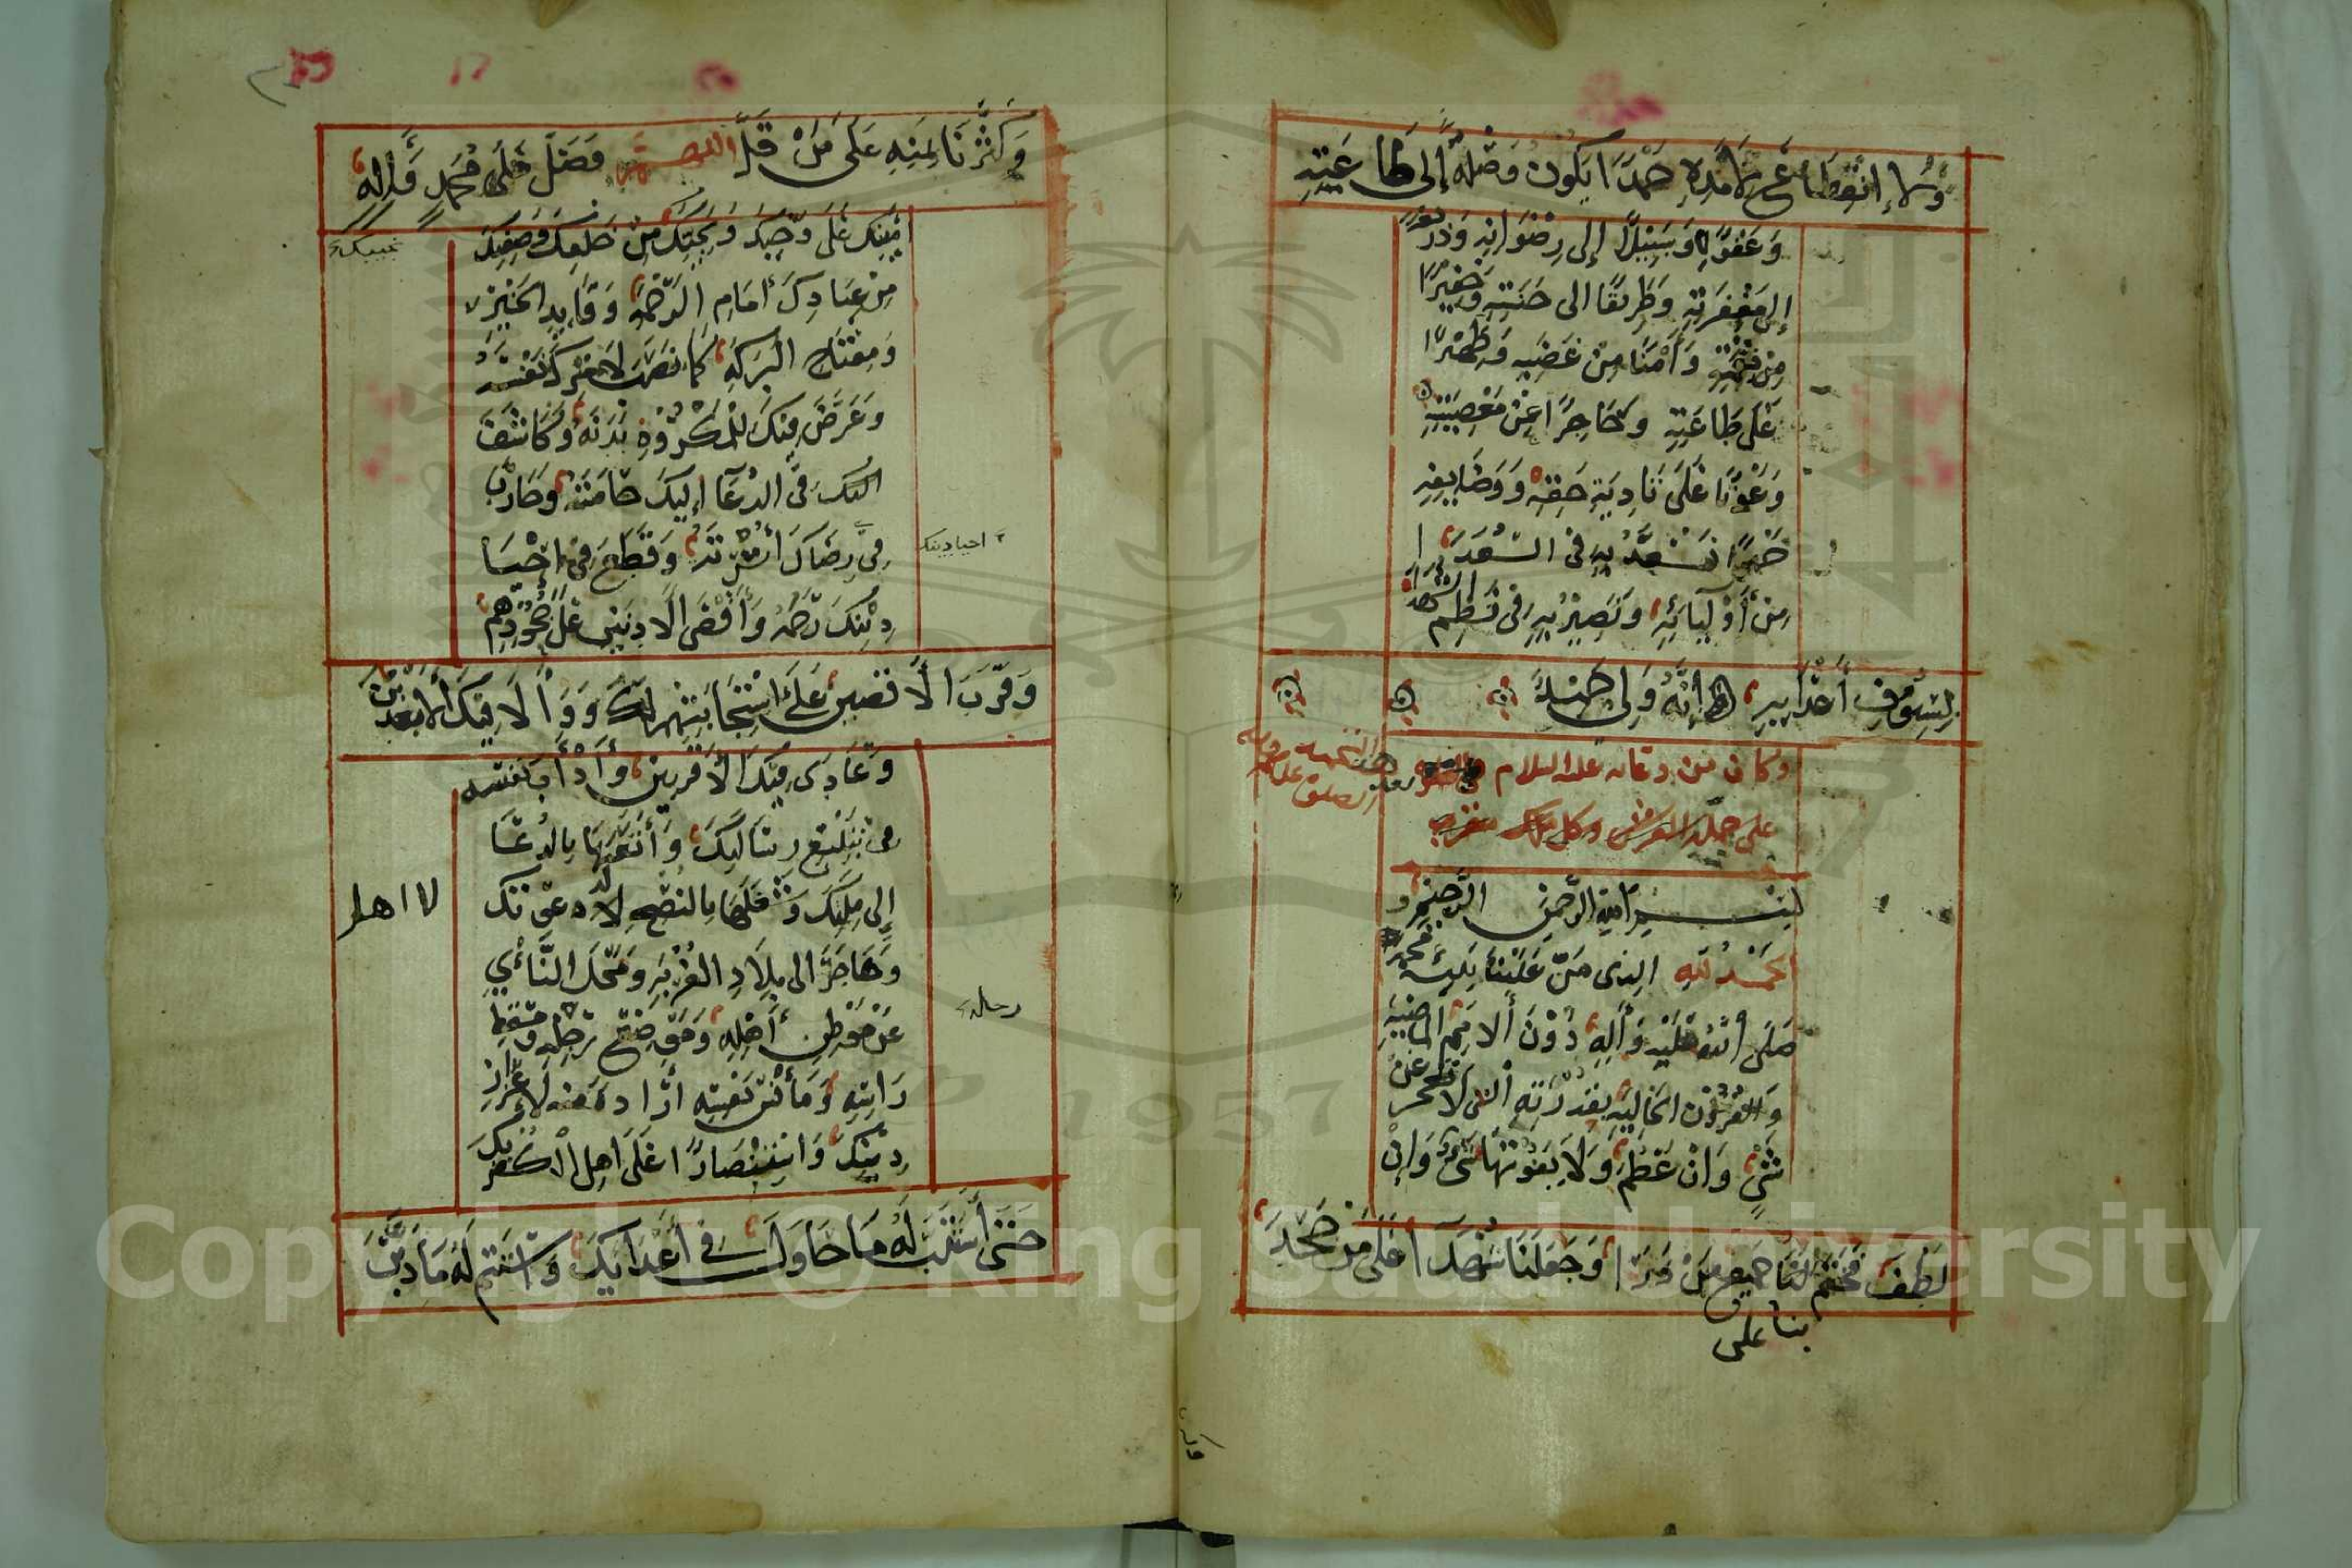 وَلَا إنْقِطَاعَ لِأَمَدِهِ حَمْدًا يَكُونُ وُصْلَةً إلى طَاعَتِهِ
وَعَفْوِهِ وَسَبِيْلًا إلى رِضْوَانِهِ وَذَرِيْعَةً
إلى مَغْفِرَتِهِ وَطَرِيْقًا الى جَنَّتِهِ وَخَفِيْرًا
مِنْ نِقْمَتِهِ وَأَمْنًا مِنْ غَضَبِهِ وَظَهِيْرًا
عَلَى طَاعَتِهِ وَحَاجِزًا عَنْ مَعْصِيَتِهِ
وَعَوْنًا عَلَى تَادِيَةِ حَقِّهِ وَوَظَايِفِهِ
حَمْدًا نَسْعَدُ بِهِ فى السُّعَدَا
مِنْ أَوْلِيَائِهِ وَنَصِيْرُ بِهِ فى نَظْمِ الشُّهَدَا
بِسُيُوفِ أَعْدَايِهِ إنَّهُ وَلِي حَمِيْدٌ
وكان من دعائه عليه السلام بعد هذا التحميد
الصلوة على
على حملة العرش وكل ملك مقرب
بسم الله الرحمن الرحيم و
الحَمْدُ لِلهِ الذى مَنَّ عَلَيْنَا بِنَبِيِّهِ مُحَمَّدٍ
صَلَى اللهُ عَلَيْهِ وَآلِهِ دُوْنَ الأُمَمِ الماضِيَةِ
وَالقُرُوْنِ الخَالِيَةِ بِقُدْرَتِهِ التى لَا تَعْجَزُ عَنْ
شَئٍ وَانْ عَظُمَ وَلَا يَفُوْتُهَا شَئٌ وَإنْ
لَطُفَ فَخَتَمَ بِنَا جَمِيْعِ مَنْ ذَرَأ وَجَعَلَنَا شُهَدَآ عَلَى مَنْ جَحَدَ
بنا على
وَكَثَّرَنَا بِمَنِّهِ عَلَى مَنْ قَلَّ اللهم فَصَلِّ عَلَى مُحَمَدٍ وَآلِهِ
أمِيْنِكَ عَلَى وَحْيِكَ وَنَجِيْبِكَ مِنْ خَلْقِكَ وَصَفِيِّكَ
نجيبك
مِنْ عِبَادِكَ أمَامِ الرَّحْمَةِ وَقَايِدِ الخَيْرِ
وَمِفْتَاحِ البَرَكَةِ كَمَا نَصَبَ لأمْرِكَ نَفْسَهُ
وَعَرَّضَ فِيْكَ لِلْمَكْرُوْهِ بَدَنَهُ وَكَاشَفَ
فى الدُعَآ إلَيْكَ حَامَّتَهُ وَحَارَبَ
فى رِضَاكَ أُسْرَتَهُ وَقَطَعَ فى إحْيَا
احيا دينك
دِيْنِكَ رَحِمَهُ وَأقْصَى الأدنَيْنِ عَلَى جُحُودِهِمْ
وَقَرَّبَ الأقصَيْنَ عَلَى اسْتِجَابَتِهِم لَكَ وَوَالَى فِيكَ الأبْعَدِيْنَ
وَعَادَى فِيْكَ الأقْرَبِيْنَ وَأدْأبَ نَفْسَه
فى تَبْلِيْغِ رِسَالَتِكَ وَأتْعَبَهَا بِالدُعَا
إلى مِلَّتِكَ وَشَغَلَهَا بِالنُصْحِ لاهل دعوتك
لا اهل
وَهَاجَرَ الى بِلَادِ الغُرْبَةِ وَمَحَلِّ النَّأيِ
عَنْ مَوْطِنِ رَحْلِهِ وَمَوْضِعِ رِجْلِهِ وَمَسْقَطِ
رحله
رَاسِهِ وَمَأنَسِ نَفْسِهِ ارَادَةً مِنه لإعْزَازِ
دِيْنِكَ وَاسْتِنْصَارًا عَلَى اهل الكُفْرِ بِكَ
حَتَى اسْتَتَبَّ لَهُ مَا حَاوَلَ فى أعْدَايِكَ وَاسْتَتَمَّ لَهُ مَا دَبَّرَ
Copyright © King Saud University
1957